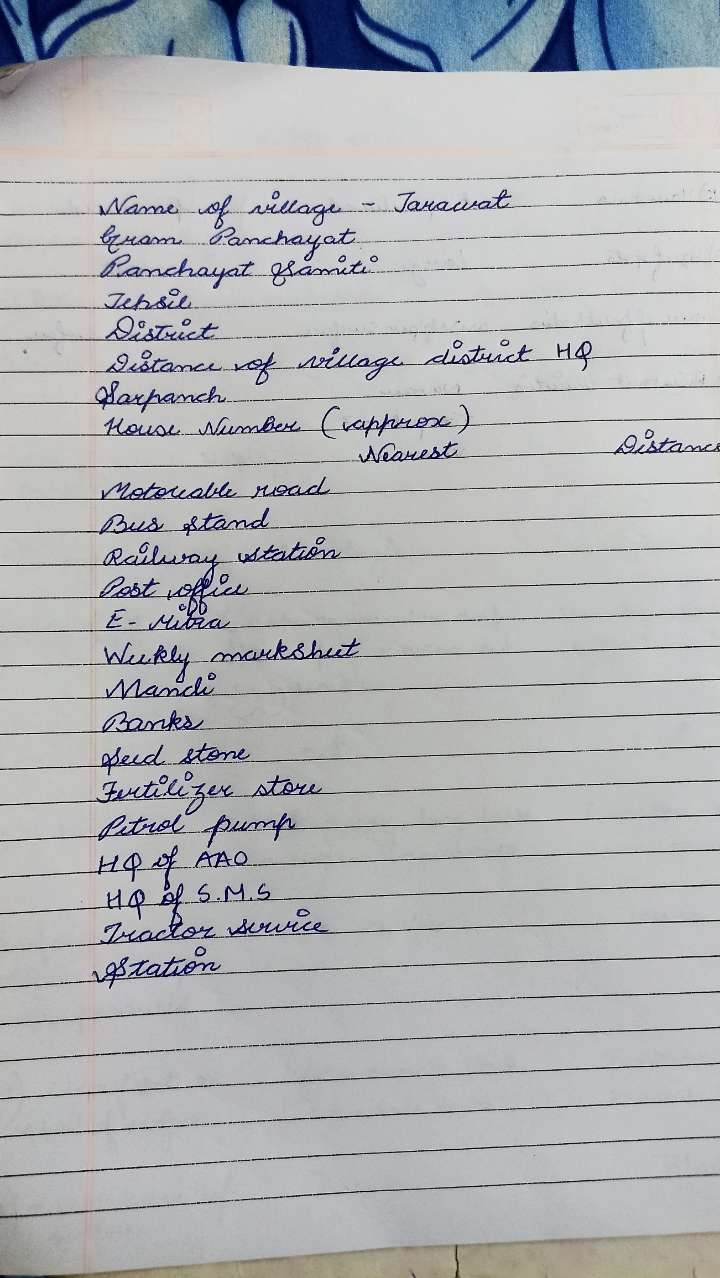 Name of village - Tarawat
Gram Panchayat
Panchayat Samiti
Tehsil
District
Distance of village district HQ
Sarpanch
House Number (approx)
Nearest Distance
Motoreable road
Bus stand
Railway station
Post office
E-Mitra
Weekly marksheet
Mandi
Banks
Seed stone
Fertilizer store
Petrol pump
HQ of AAO
HQ of S.M.S
Tractor service
Station